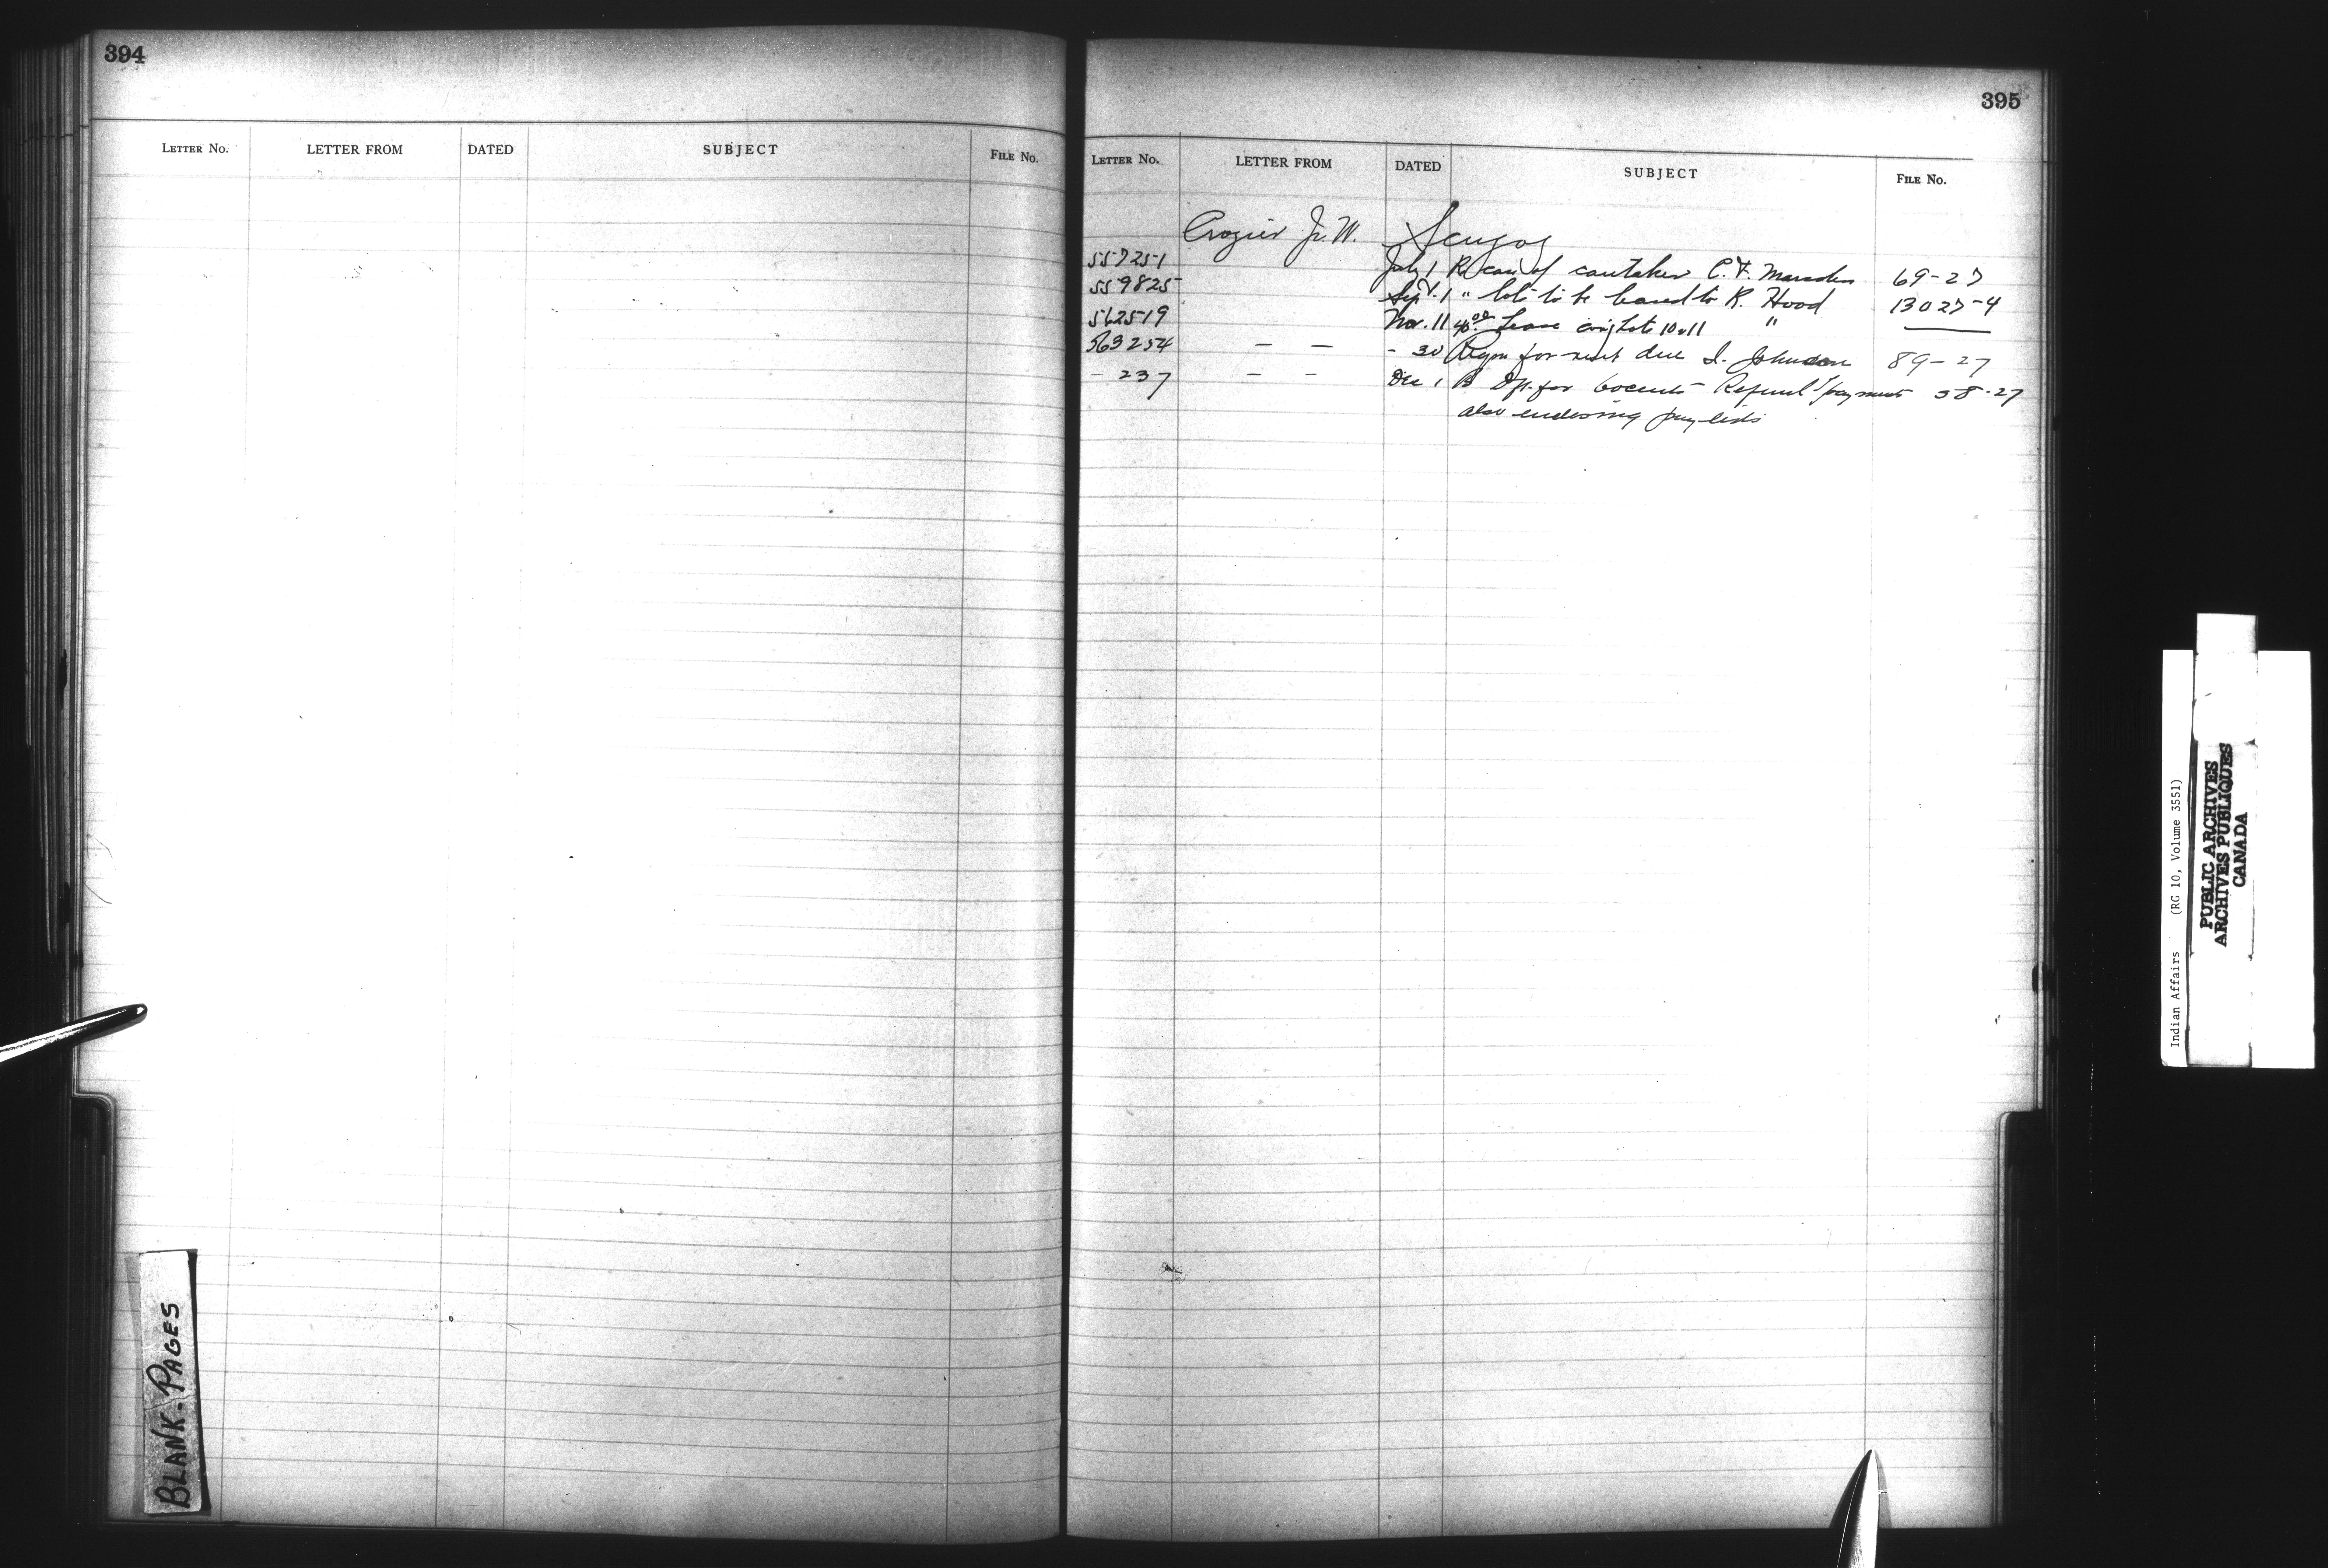 394
LETTER NO. LETTER FROM DATED SUBJECT FILE NO.
BLANK-PAGES
395
LETTER NO. LETTER FROM DATED SUBJECT FILE NO.
Crozier Jr. W. Scugog
557251 July 1 Re care of caretaker C. F. Marsden 69-27
559825 Sept. 1 " lots to be leased to R. Hood 13027-4
562519 Nov. 11 Lease Lots 10 & 11 "
563254 — — - 30 for rent due I. Johnson 89-27
- 237 — — Dec 1 for 60 cents Refund payment 38-27
also enclosing pay-lists
Indian Affairs (RG 10, Volume 3551)
PUBLIC ARCHIVES
ARCHIVES PUBLIQUES
CANADA